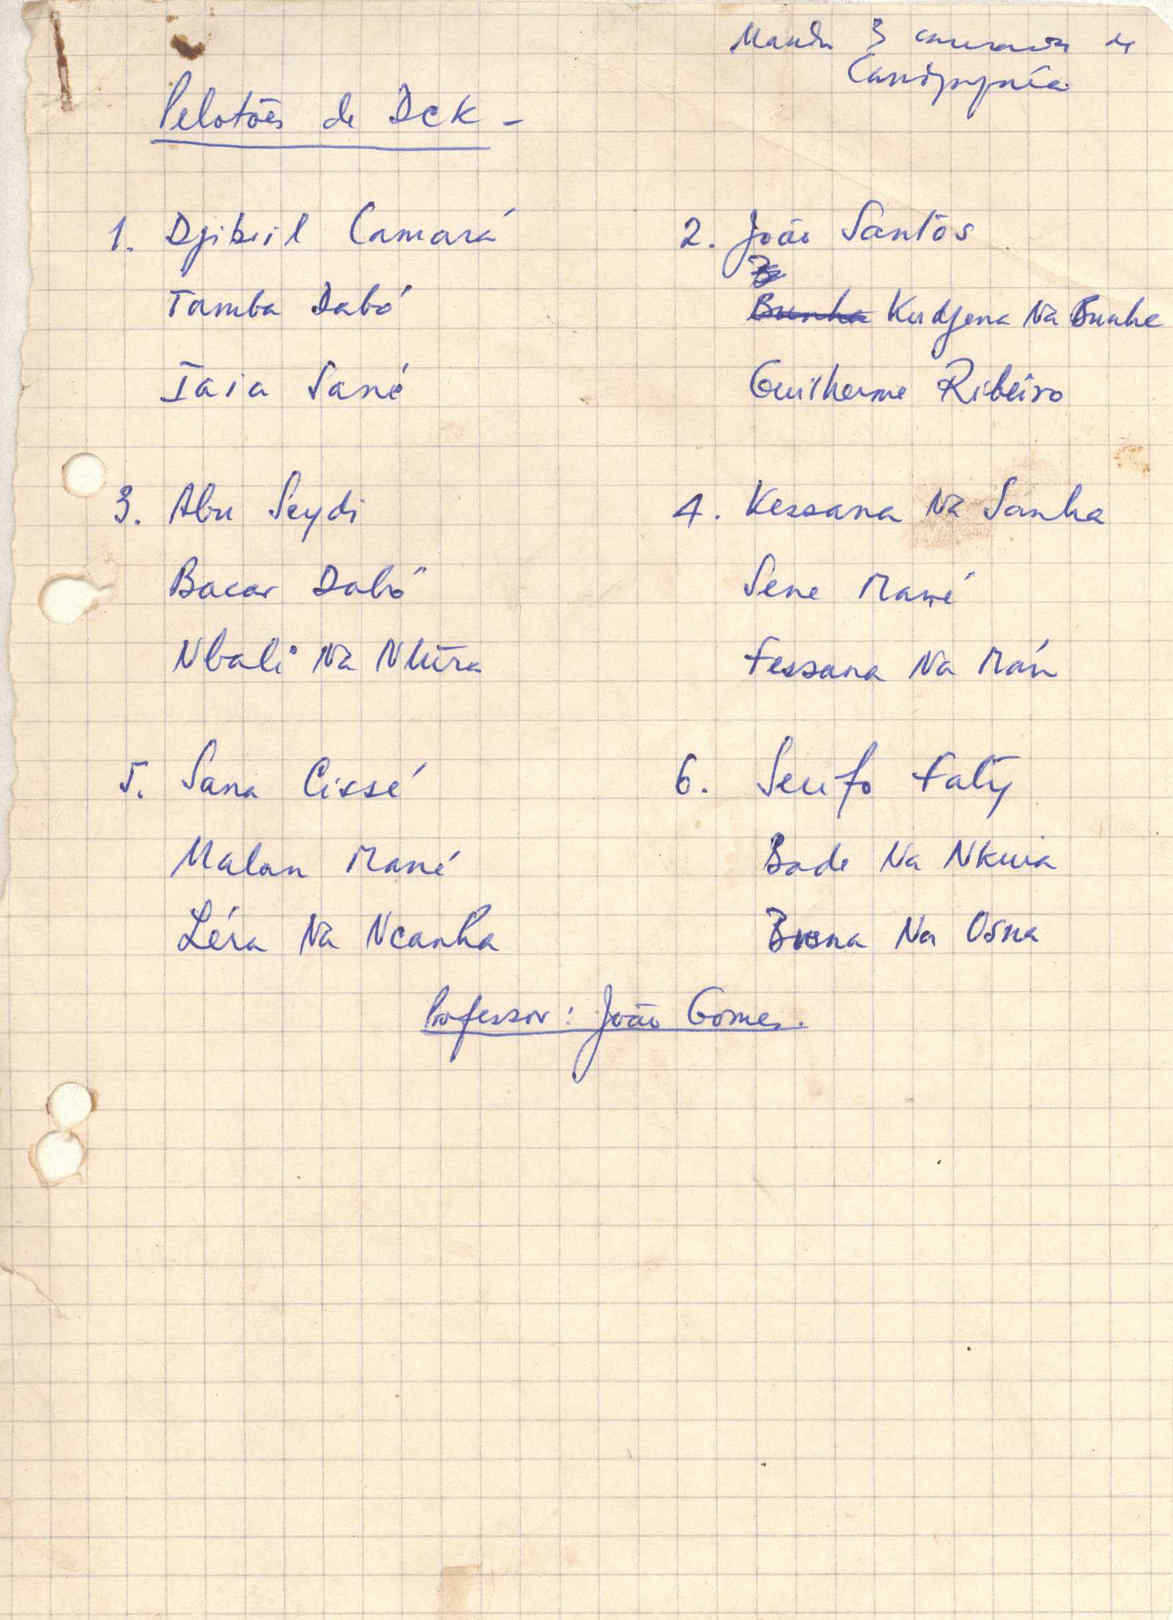 Mandar 3 camaradas de
Pelotões de DCK -
1. Djibril Camará
Tamba Dabó
Iaia Sané
2. João Santos
Bunha Kudjena Na Bunhe
Guilherme Ribeiro
3. Abu Seydi
Bacar Dabó
Nbali Na
4. Kessana Na Sanha
Sene Mané
Fessana Na Mán
5. Sana Cissé
Malan Mané
Léra Na Ncanha
6. Serifo Faty
Bade Na Nkuia
Busna Na Osna
Professor: João Gomes.